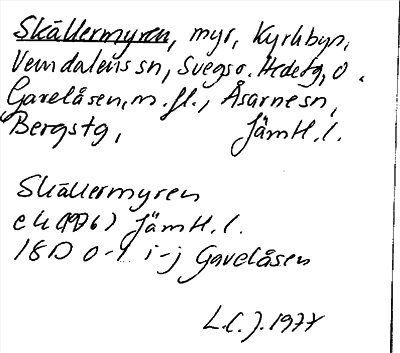 Skällermyren, myr, Kyrkbyn,
Vemdalens sn, Svegs o. Hedetg, o.
Gavelåsen, m. fl., Åsarne sn,
Bergs tg, Jämtl. l.
Skällermyren
ek (1976) Jämtl. l.
18D 0-1 i-j Gavelåsen
L.C.J. 1977